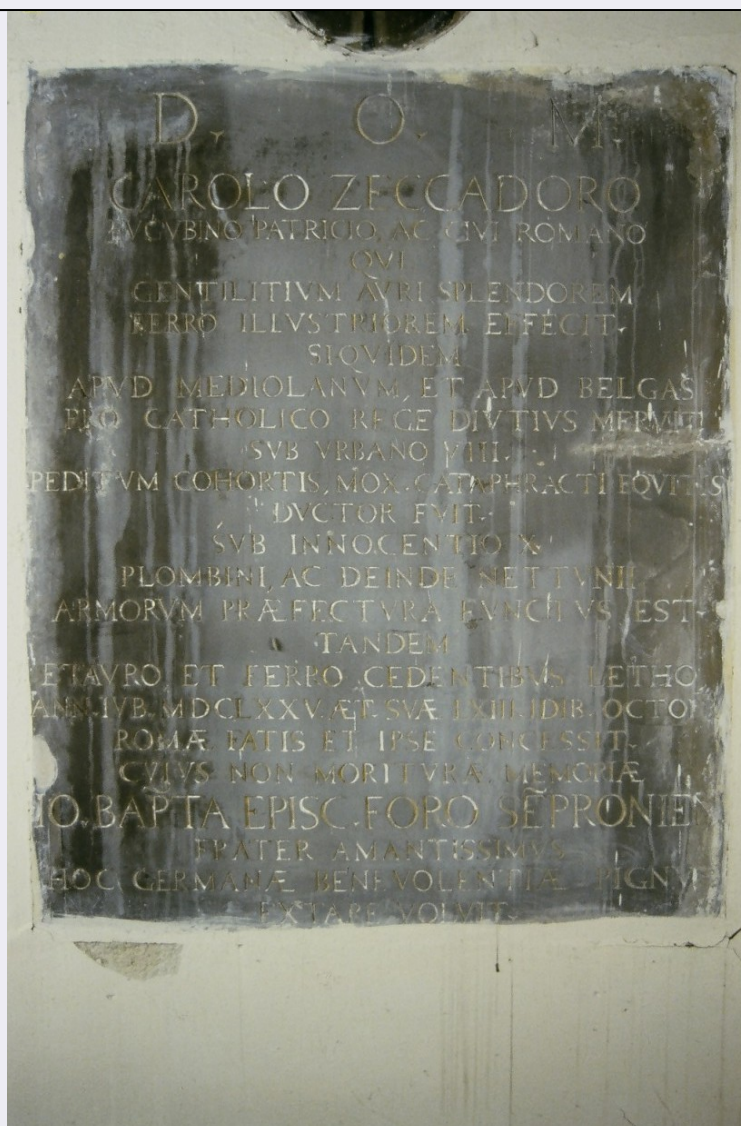 D. O. M.
CAROLO ZECCADORO
EVGVBINO PATRICIO, AC CIVI ROMANO
QVI
GENTILITIVM AVRI SPLENDOREM
FERRO ILLVSTRIOREM EFFECIT.
SIQVIDEM
APVD MEDIOLANVM, ET APVD BELGAS
PRO CATHOLICO REGE DIVTIVS MERVIT.
SVB VRBANO VIII.
PEDITVM COHORTIS, MOX. CATAPHRACTI EQVITIS
DVCTOR FVIT.
SVB INNOCENTIO X.
PLOMBINI, AC DEINDE NETTVNII
ARMORVM PRÆFECTVRA FVNCTVS EST.
TANDEM
ET AVRO, ET FERRO CEDENTIBVS LETHO
ANN. IVB. MDCLXXV. ÆT. SVÆ LXIII. IDIB. OCTOB
ROMÆ FATIS ET IPSE CONCESSIT.
CVIVS NON MORITVRÆ MEMORIÆ
IO. BAPTA EPISC. FORO SEPRONIEN
FRATER AMANTISSIMVS
HOC GERMANÆ BENEVOLENTIÆ PIGNVS
EXTARE VOLVIT.